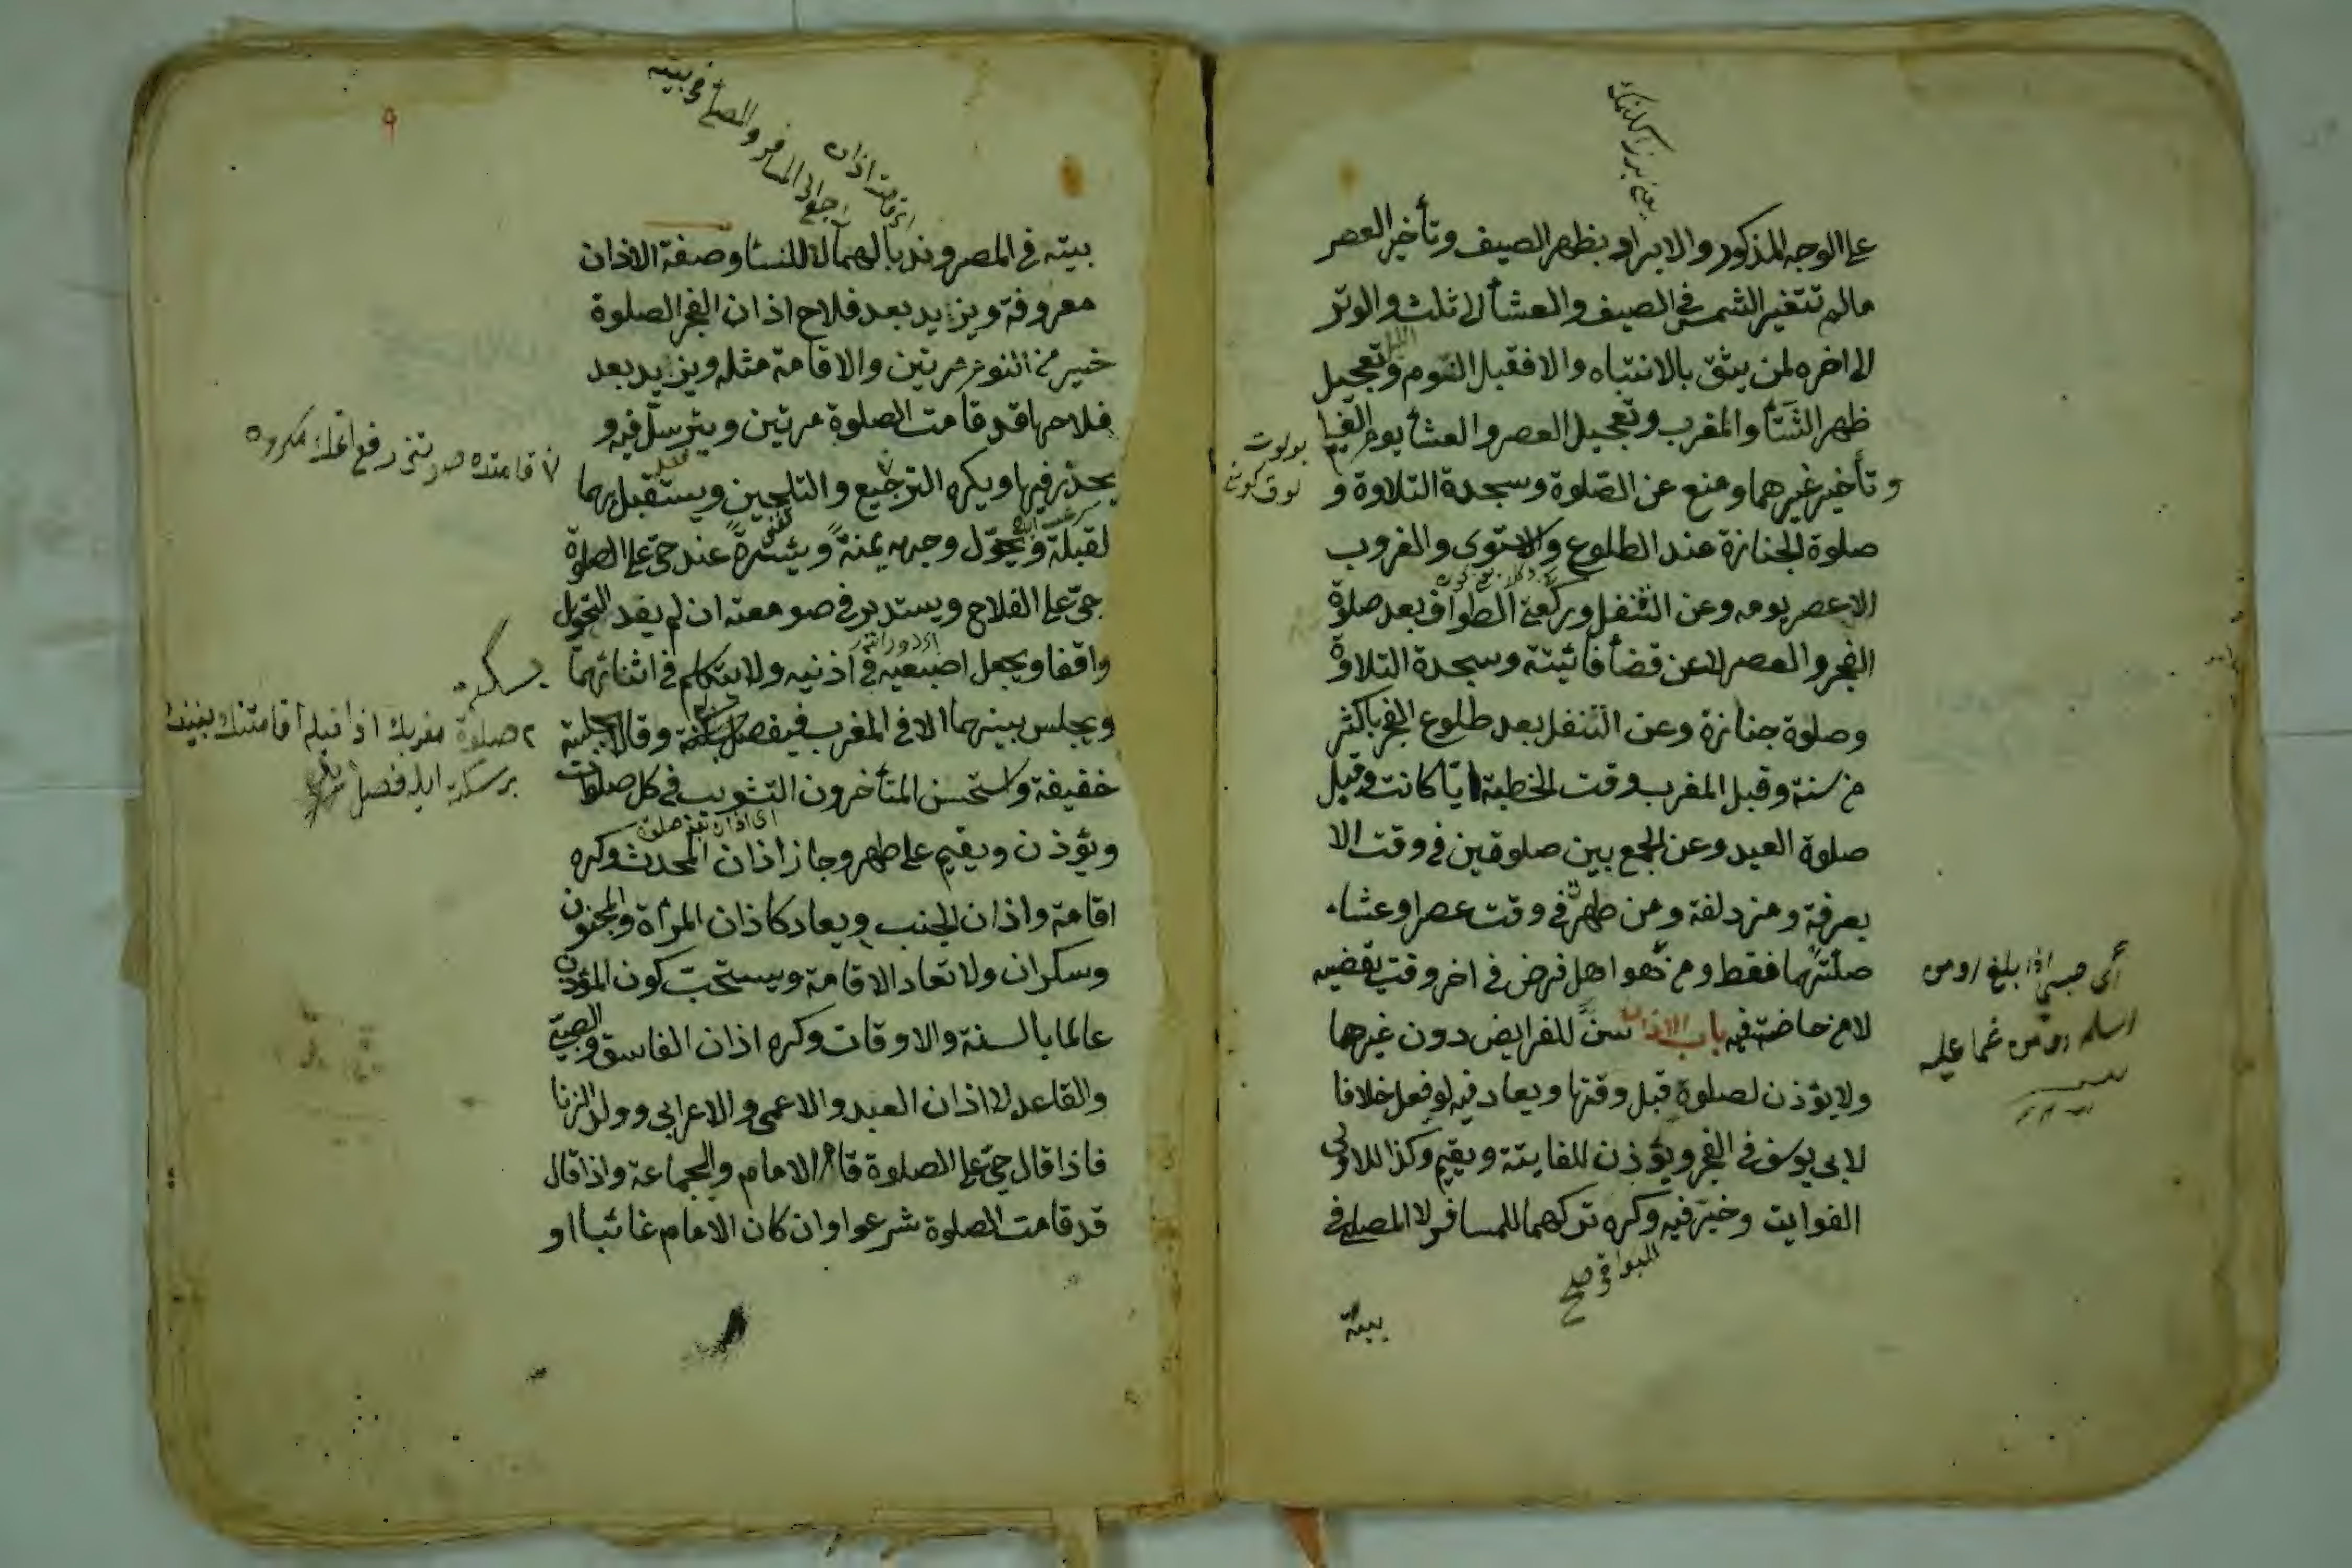 على الوجه المذكور والابراد بظهر الصيف وتأخير العصر
مالم تتغير الشمس في الصيف والعشأ الى ثلث والوتر
الليل
الى اخره لمن يثق بالانتباه والا فقبل النوم وتعجيل
ظهر الشتأ والمغرب وتعجيل العصر والعشأ يوم الغيم
بولوت
لوق كون
وتأخير غيرهما ومنع عن الصلوة وسجدة التلاوة و
صلوة الجنازة عند الطلوع والاستوى والغروب
الا عصر يومه وعن التنفل وركعتي الطواف بعد صلوة
الفجر والعصر لا عن قضأ فائيتة وسجدة التلاوة
وصلوة جنازة وعن التنفل بعد طلوع الفجر باكثر
من سنة وقبل المغرب وقت الخطبة ايا كانت وقبل
صلوة العيد وعن الجمع بين صلوتين في وقت الا
بعرفة ومزدلفة ومن طهرت في وقت عصر او عشاء
صلتهما فقط ومن هو اهل فرض في اخر وقت يقضيه
اى صبى اذا بلغ او من
اسلم او من غما عليه
لا من حاضت فيه باب الاذان سن للفرايض دون غيرها
ولا يؤذن لصلوة قبل وقتها ويعاد فيه لو فعل خلافا
لابى يوسف في الفجر ويؤذن للفايتة ويقيم وكذا للاولى
الفوايت وخير فيه وكره تركهما للمسافر لا المصلى في
للبواقى صح
بيته
٩
اقامت اذان
المسافر والمصلى فى بيته
بيته في المصر وندبا لهما لا للنسأ وصفة الاذان
معروفة ويزيد بعد فلاح اذان الفجر الصلوة
خير من النوم مرتين والاقامة مثله ويزيد بعد
فلاحها قد قامت الصلوة مرتين ويترسل فيه و
يحدر فيها ويكره الترجيع والتلحين ويستقبل بهما
لقبلة ويحول وجهه يمنة ويسرة عند حي على الصلوة
حي على الفلاح ويستدير في صومعته ان لم يفد التحويل
واقفا ويجعل اصبعيه في اذنيه ولا يتكلم في اثنائهما
ويجلس بينهما الا في المغرب فيفصل بسكتة وقالا بجلسة
٢ صلوة مغربك اذانيله اقامتنك بيننده
بر سكته ايله فصل
خفيفة واستحسن المتأخرون التثويب في كل صلوات
ويؤذن ويقيم على طهر وجاز اذان المحدث وكره
اقامة واذان الجنب ويعاد كاذان المرأة والمجنون
وسكران ولا تعاد الاقامة ويستحب كون المؤذن
عالما بالسنة والاوقات وكره اذان الفاسق والصبي
والقاعد لا اذان العبد والاعمى والاعرابي وولد الزنا
فاذا قال حي على الصلوة قام الامام والجماعة واذا قال
قد قامت الصلوة شرعوا وان كان الامام غائبا او